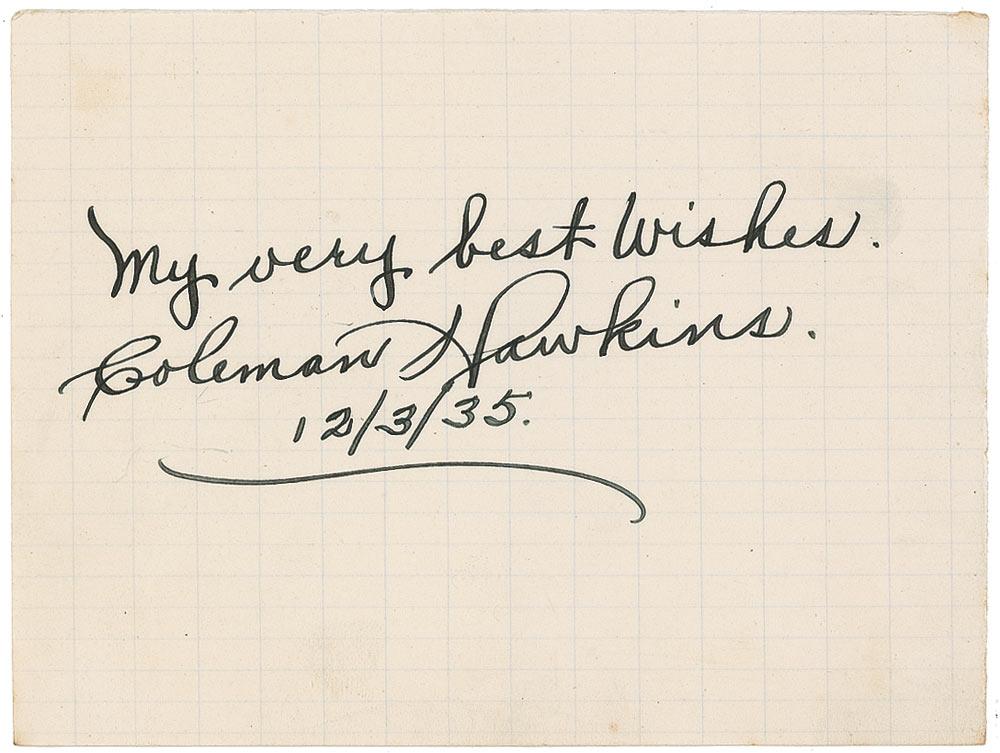 My very best Wishes.
Coleman Hawkins.
12/3/35.